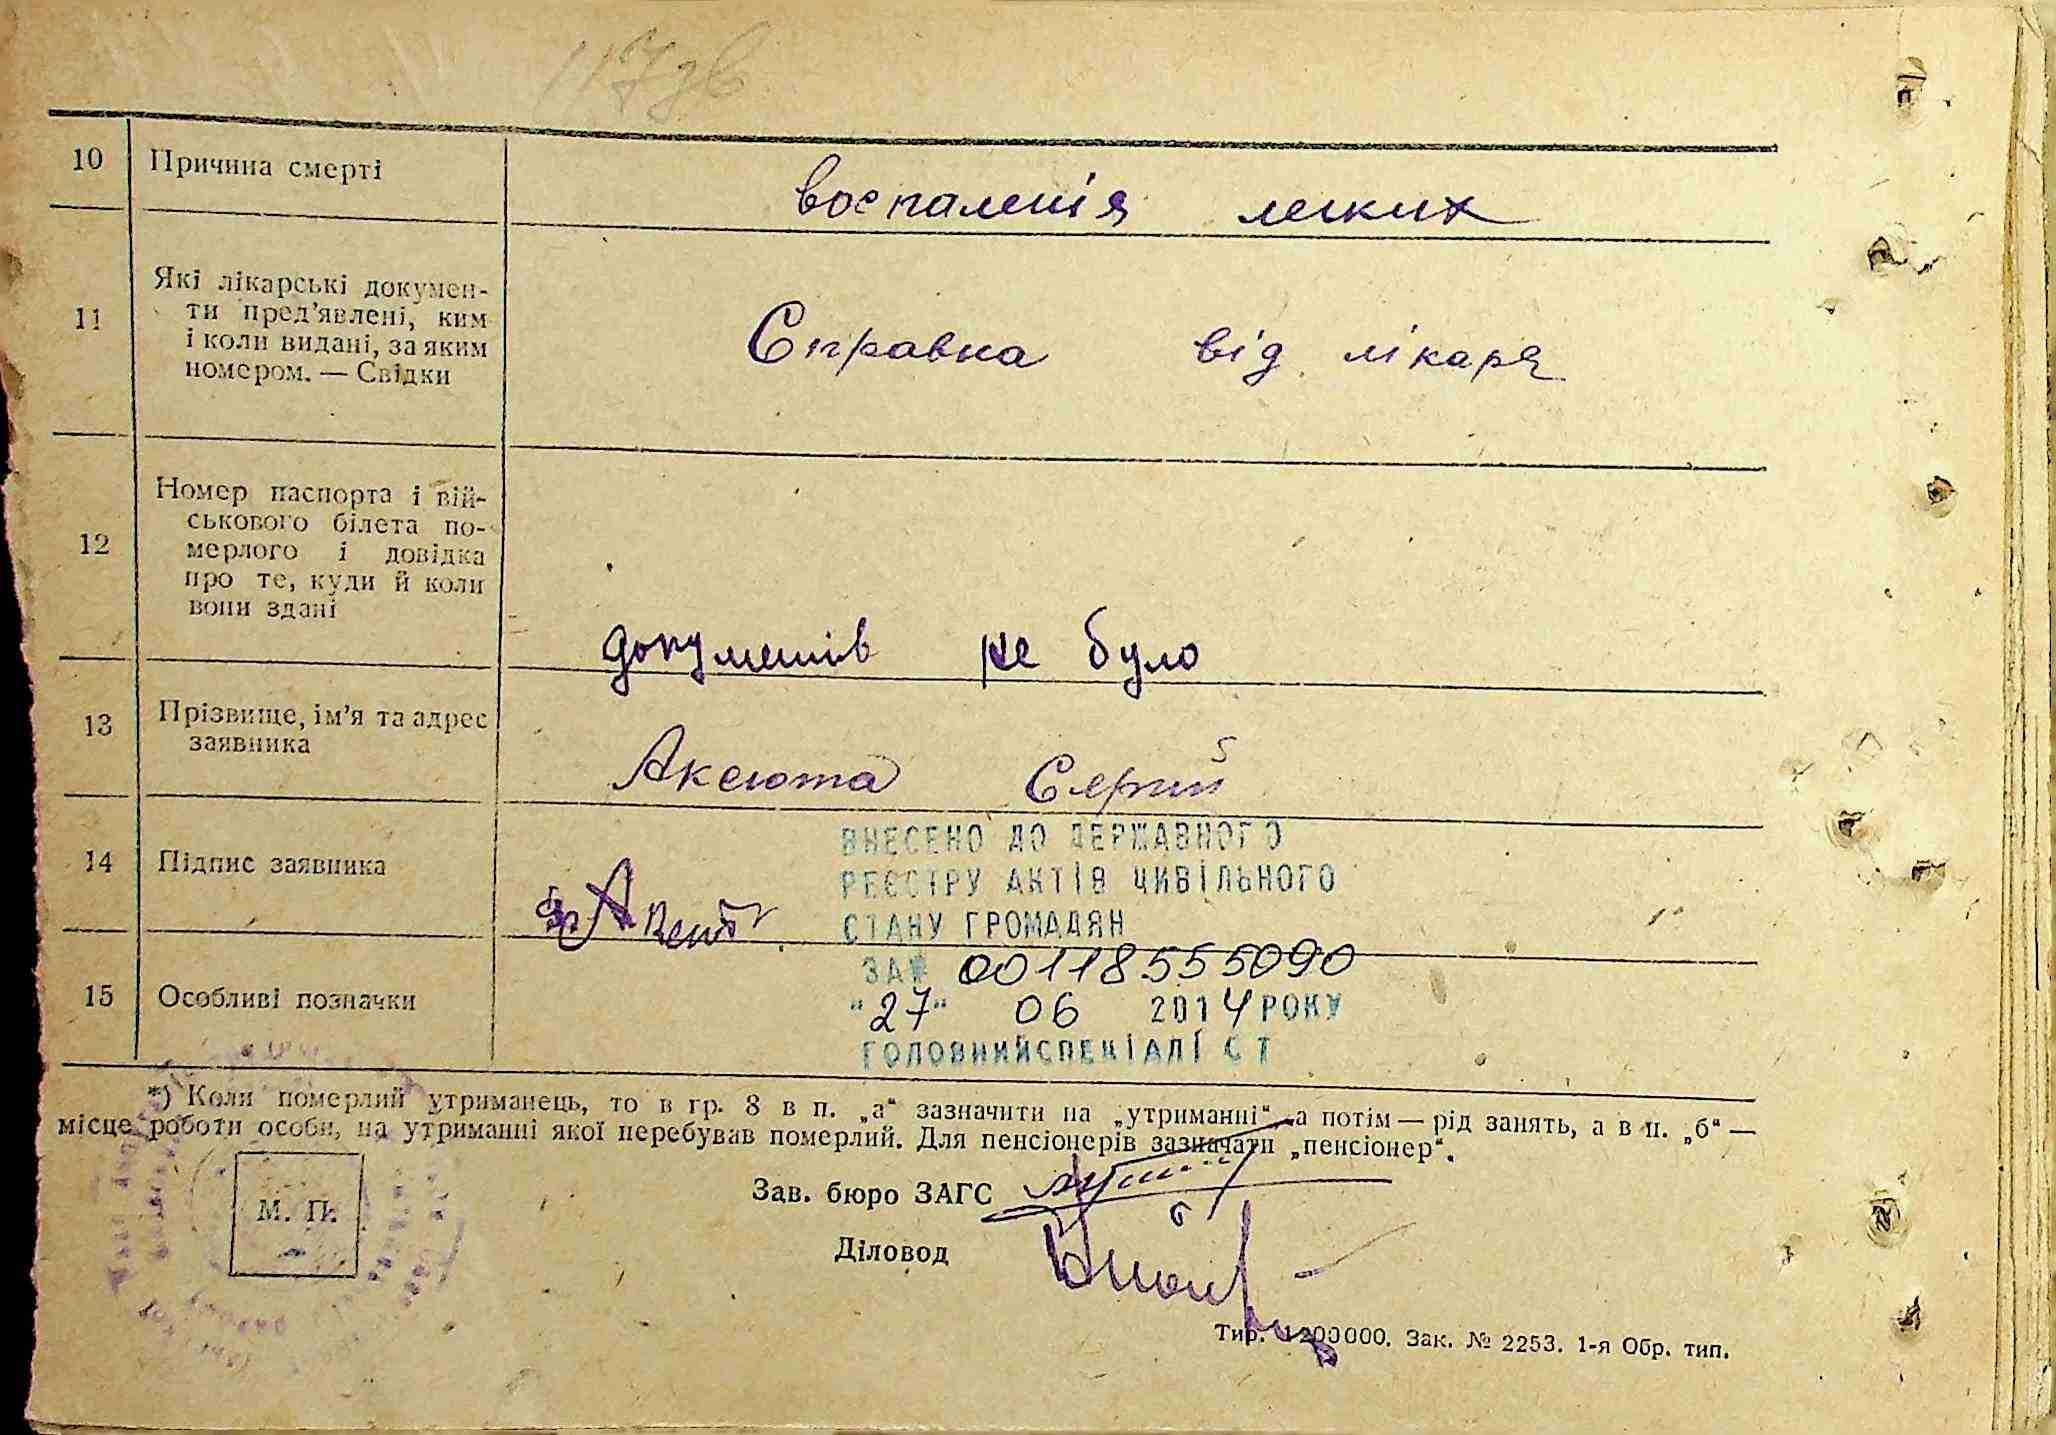 117зв
10 Причина смерті
воспаленія легких
11 Які лікарські докумен-
ти пред’явлені, ким
і коли видані, за яким
номером. — Свідки
Справка від лікаря
12 Номер паспорта і вій-
ськового білета по-
мерлого і довідка
про те, куди й коли
вони здані
документів не було
13 Прізвище, ім’я та адрес
заявника
Аксюта Сергій
14 Підпис заявника
15 Особливі позначки
ВНЕСЕНО ДО ДЕРЖАВНОГО
РЕЄСТРУ АКТІВ ЦИВІЛЬНОГО
СТАНУ ГРОМАДЯН
ЗА№ 00118555090
"27" 06 2014 РОКУ
ГОЛОВНИЙСПЕЦІАЛІСТ
*) Коли померлий утриманець, то в гр. 8 в п. „а“ зазначити на „утриманні“, а потім — рід занять, а в п. „б“ —
місце роботи особи, на утриманні якої перебував померлий. Для пенсіонерів зазначати „пенсіонер“.
Зав. бюро ЗАГС
М. П.
Діловод
Тир. 1200000. Зак. № 2253. 1-я Обр. тип.